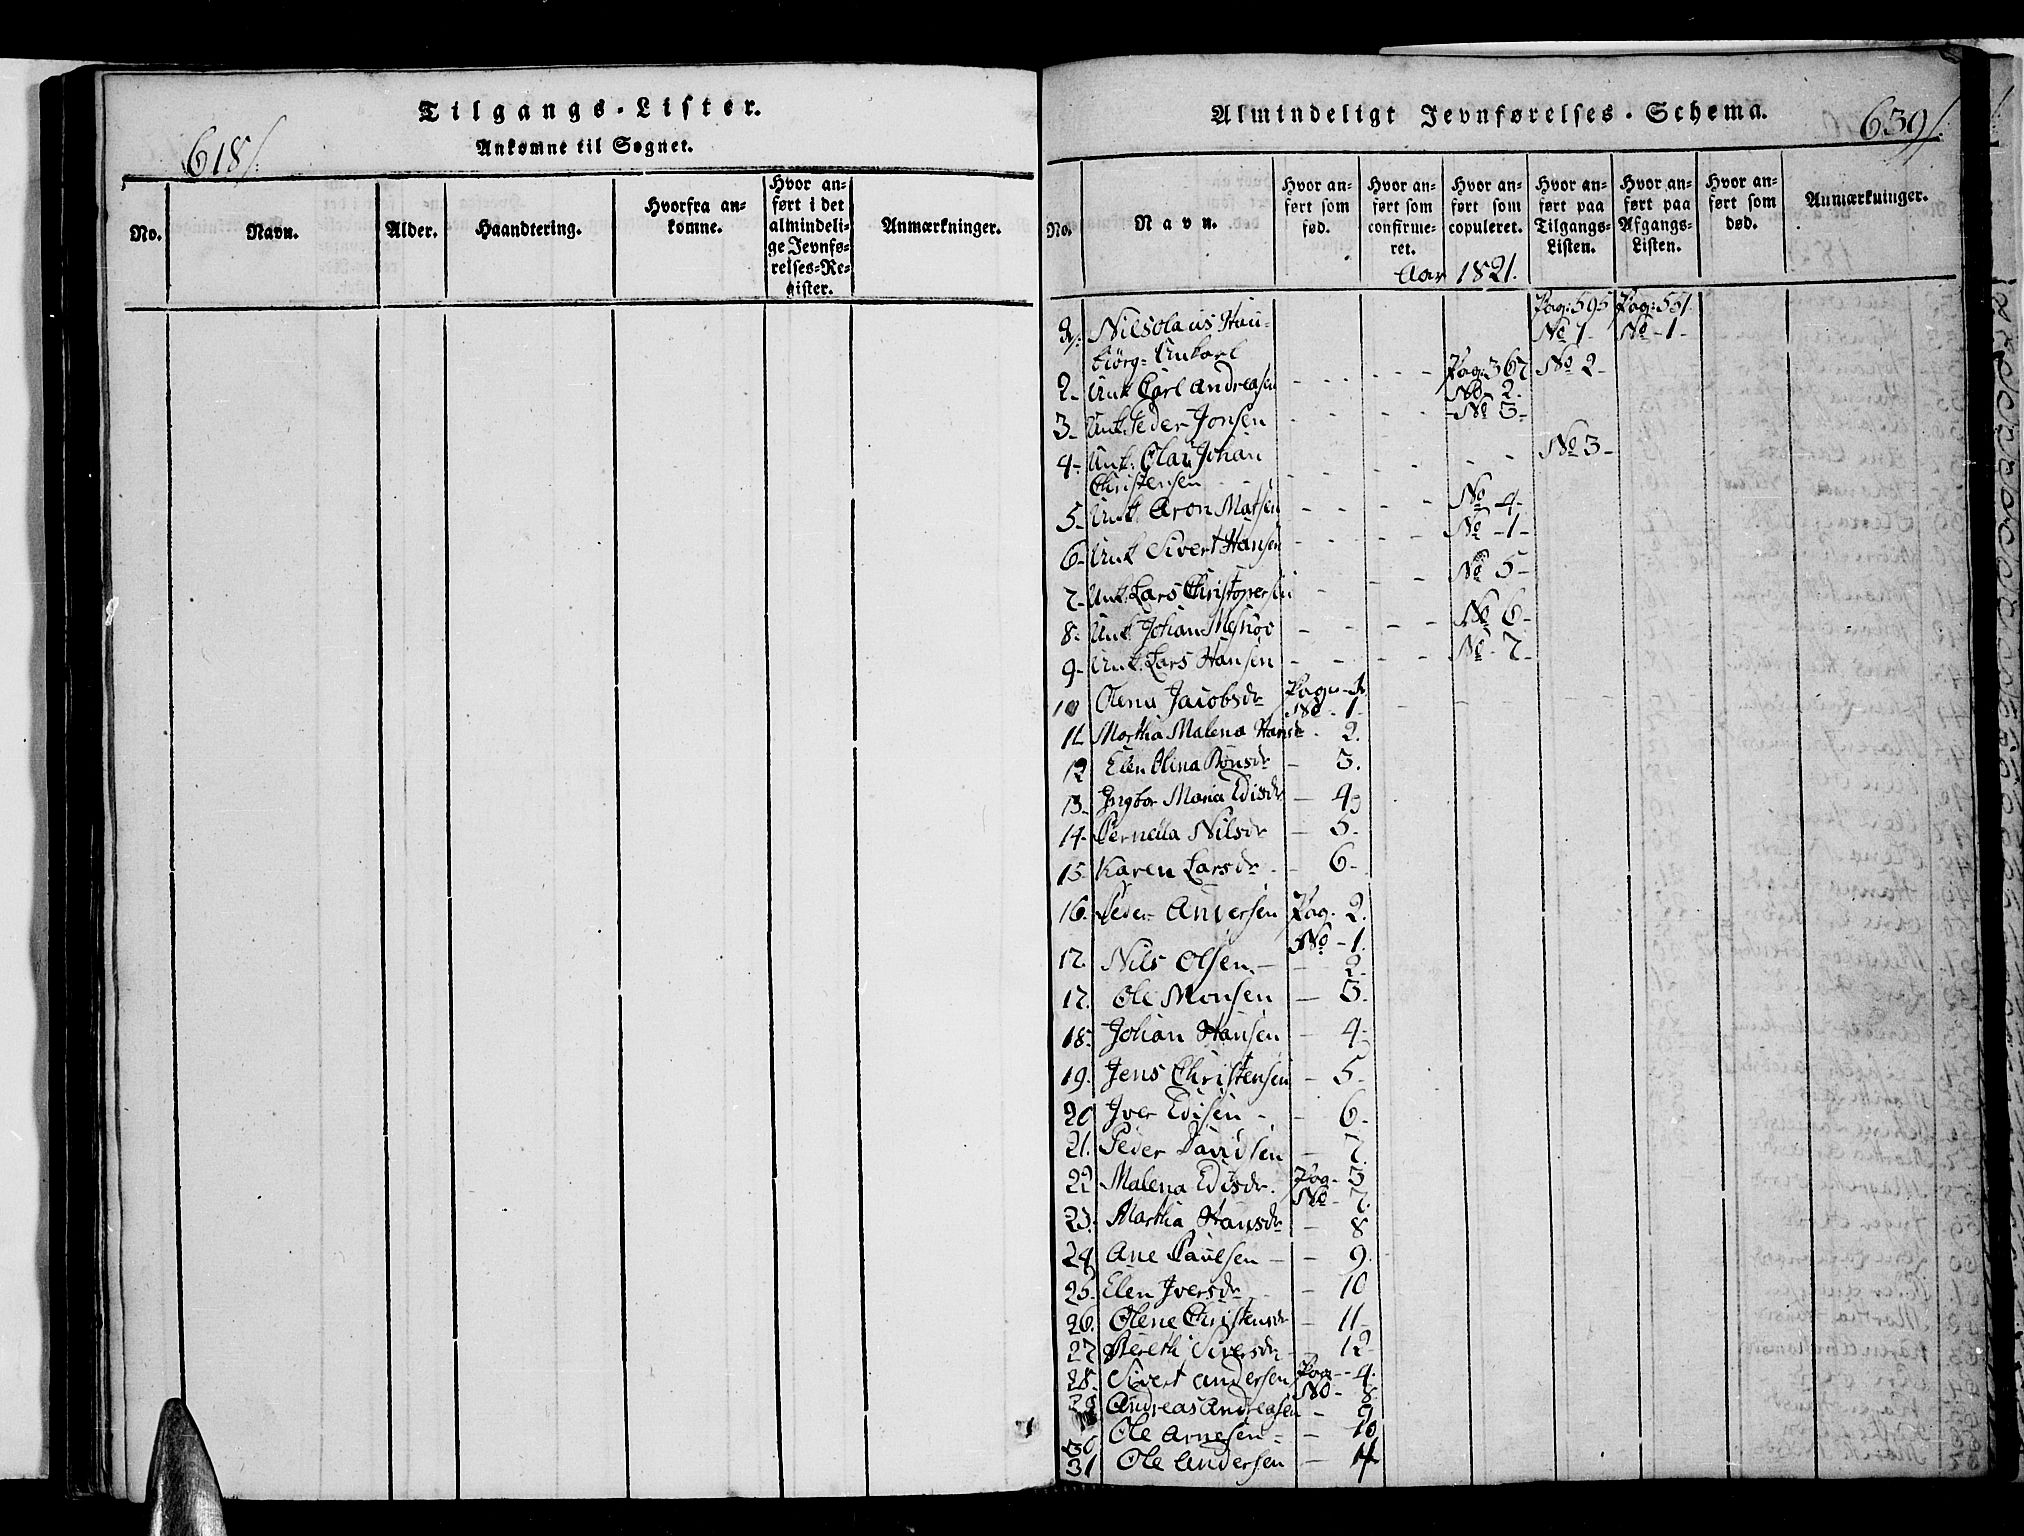 Tilgangs-Lister.
618/.
Ankomne til Sognet.
No.
Navn.
Alder.
Haandtering.
Hvorfra an-
komne.
Hvor an-
ført i det
almindeli-
ge Jevnfø-
relses-Re-
gister.
Anmærkninger.
Almindeligt Jevnførelses-Schema.
639/.
No.
Navn.
Hvor an-
ført som
fød.
Hvor an-
ført som
confirme-
ret.
Hvor an-
ført som
copuleret.
Hvor an-
ført paa
Tilgangs-
Listen.
Hvor an-
ført paa
Afgangs-
Listen.
Hvor an-
ført som
død.
Anmærkninger.
Aar 1821.
Pag: 595 Pag: 551
Nilsolaus Hau- No 1 - No - 1 -
Pag: 367 No 2 -
2 - Unk Carl Andreasen - - - - - - No - 2.
3 - Unk. Peder Jonsen - - - - - No 3 -
4 - Unk. Olai Johan No 3 -
Christensen
5 - Unk. Aron Matsen - - - - No - 4 -
6 - Unk Sivert Hansen - - - - No - 1 -
7 - Unk. Lars Christopersen - - - No 5 -
8 - Unk. Johan - - - - No 6 -
9 - Unk. Lars Hansen - - - - No - 7 -
10 Olena Jacobsdr Pag: - 1
No - 1 -
11 Martha Malena Hansdr - 2.
12 Elen Olina - 3.
13 - Ingbor Maria Edisdr - 4
14 - Pernella Nilsdr - 5 -
15 Karen Larsdr - - 6 -
16. Peder Andersen Pag. 2.
No - 1.
17. Nils Olsen - - 2 -
17. Ole Monsen - 3 -
18. Johan Hansen - 4 -
19. Jens Christensen - 5 -
20 Iver Edisen - - 6 -
21. Peder Davidsen - 7.
22 Malena Edisdr. Pag - 3
No - 7.
23. Martha Hansdr - 8
24 Ane Paulsen - - 9.
25. Elen Iversdr - 10
26. Olene Christensdr - 11 -
27 Bereth Siversdr - 12 -
28. Sivert Andersen Pag - - 4.
No - 8.
29 Andreas Andreasen - 9
30 Ole Arnesen - - 10
31 Ole Andersen - 11